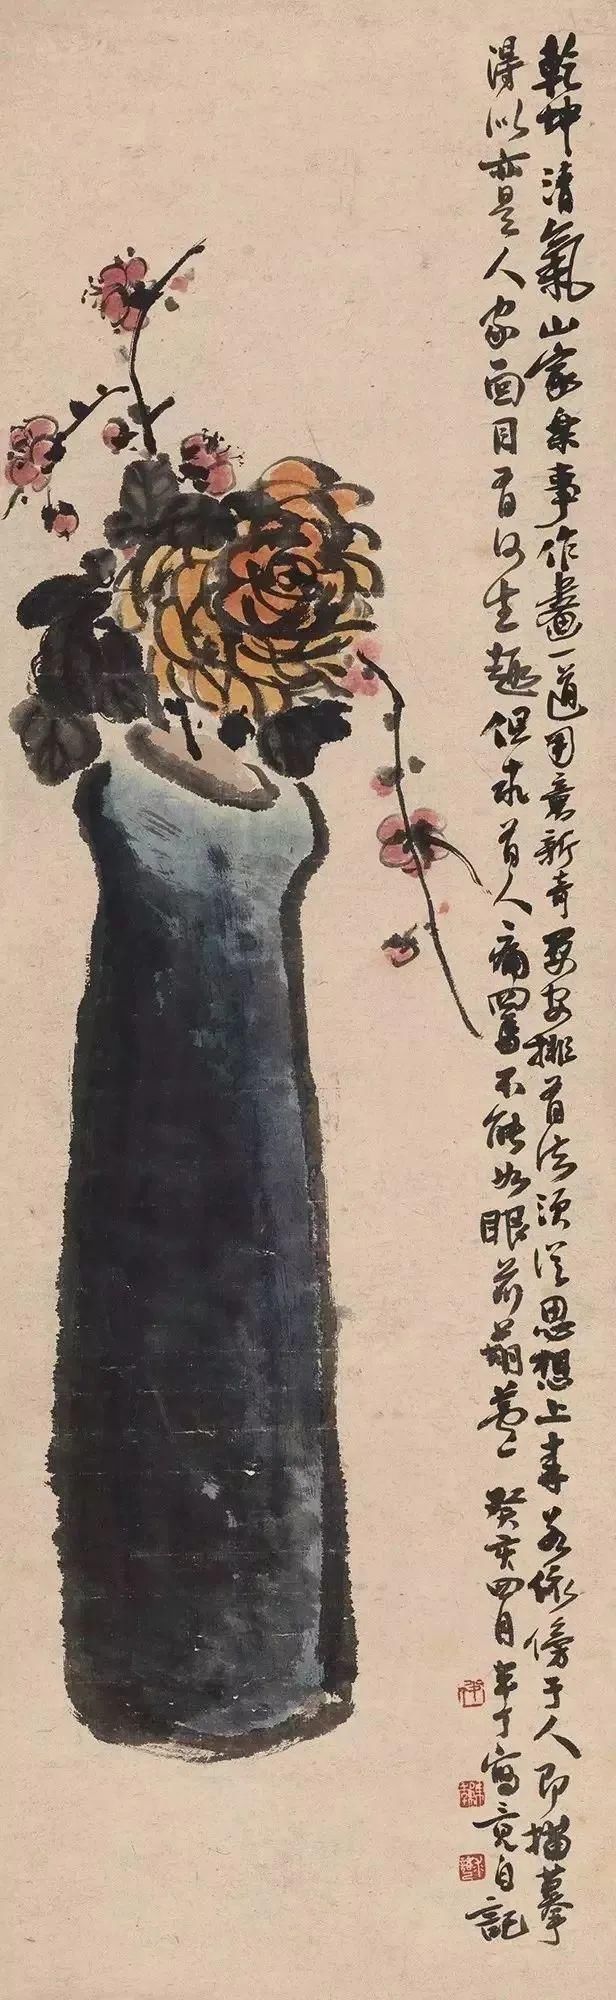 乾坤清氣山家樂事作畫一道用意新奇要安排有法須從思想上來若依傍于人即描摹
得似亦是人家面目有何生趣但求人不能如眼前葫蘆癸亥四月半丁寫竟自記